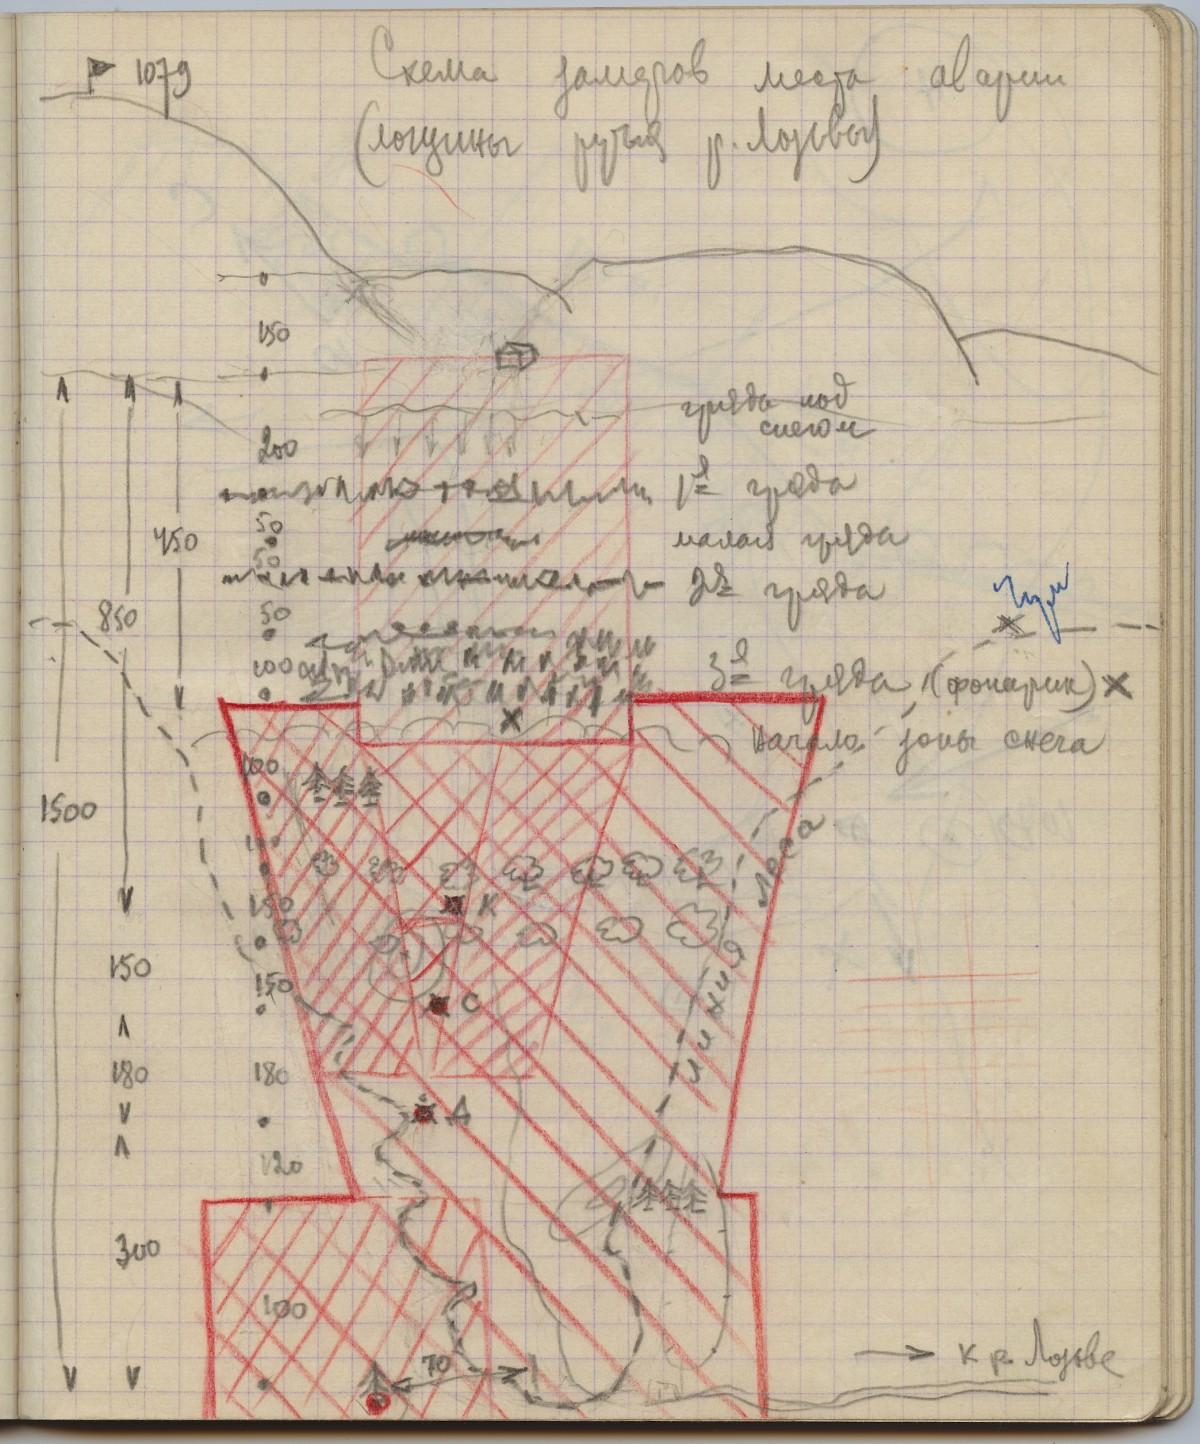 1079
Схема замеров места аварии
(лощины ручья р. Лозьвы)
150
гряда под
снегом
200
1я гряда
50
450
малая гряда
50
2я гряда
850
50
100
3я гряда (фонарик)
начало зоны снега
100
1500
100
линия леса
150
К
150
150
С
180
180
Д
120
300
100
70
к р. Лозьве